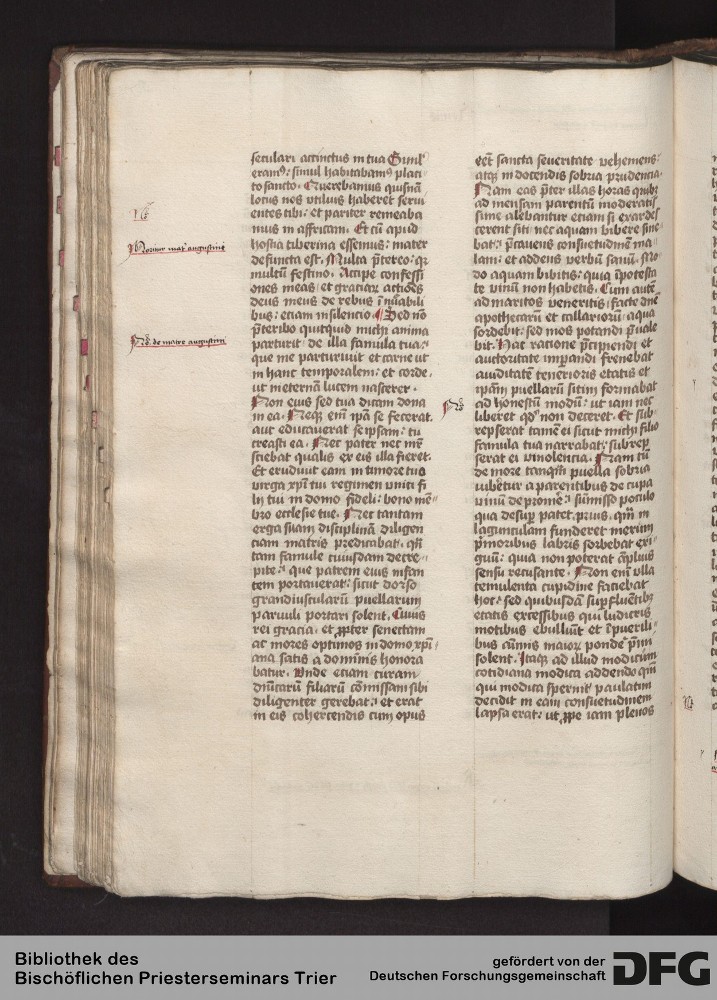 seculari accinctus in tua Simlʼ
eramꝰ: simul habitabamꝰ placi
to sancto. Querebamus quisnā
locus nos vtilius haberet serui
entes tibi: et pariter remeaba
mus in affricam. Et cū apud
hostia tiberina essemus: mater
defuncta est. Multa p̄tereo: qꝛ
multū festino. Accipe confessi
ones meas et graciaꝝ actiōes
deus meus de rebus īnūabili
bus: etiam in silencio. Sed nō
p̄teribo quitquid michi anima
parturit de illa famula tua:
que me parturiuit et carne ut
in hanc temporalem: et corde.
ut in eternam lucem nascerer.
Non eius sed tua dicam dona
in ea. Neqꝫ em̄ ip̄a se fecerat.
aut educauerat seipsam: tu
creasti eā. Nec pater nec mr̄
sciebat qualis ex eis illa fieret.
Et erudiuit eam in timore tuo
virga xp̄i tui regimen vnici fi
lij tui in domo fideli: bono mē
bro ecclesie tue. Nec tantam
erga suam disciplinā diligen
ciam matris predicabat. qm̄
tam famule cuiusdam decre
pite: que patrem eius infan
tem portauerat: sicut dorso
grandiuscularū puellarum
paruuli portari solent. Cuius
rei gracia. et ꝓpter senectam
ac mores optimos in domo xp̄i
ana satis a dominis honora
batur. Vnde etiam curam
dn̄icarū filiarū cōmissam sibi
diligenter gerebat: et erat
in eis cohercendis cum opus
eēt sancta seueritate vehemens:
atqꝫ in docendis sobria prudencia.
Nam eas p̄ter illas horas quibꝫ
ad mensam parentū moderatis
sime alebantur etiam si exardes
cerent siti nec aquam bibere sine
bat: p̄cauens consuetudinē ma
lam: et addens verbū sanū. Mo
do aquam bibitis: quia ī potesta
te vinū non habetis. Cum autē
ad maritos veneritis: facte dn̄e
apothecarū et cellariorū: aqua
sordebit: sed mos potandi p̄uale
bit. Hac ratione p̄cipiendi et
auctoritate imꝑandi frenebat
auiditatē tenerioris etatis et
ip̄am puellarū sitim formabat
ad honestū modū: ut iam nec
liberet qd̕ non deceret. Et sub
repserat tamē ei sicut michi filio
famula tua narrabat: subrep
serat ei vinolencia. Nam cū
de more tanqm̄ puella sobria
iuberetur a parentibus de cupa
vinū deprome: sūmisso poculo
qua desuꝑ patet. prius. qm̄ in
lagunculam funderet merum
p̄moribus labris sorbebat exi
guū: quia non poterat āplius
sensu recusante. Non em̄ vlla
temulenta cupidine faciebat
hoc: sed quibusdā suꝑfluentibꝫ
etatis excessibus qui ludicris
motibus ebulliūt et ī puerili
bus aīmis maioꝝ pondē p̄mi
solent. Itaqꝫ ad illud modicum
cotidiana modica addendo qm̄
qui modica spernit paulatim
decidit in eam consuetudinem
lapsa erat: ut ꝓpe iam plenos
Moritur mat̕ augustini
No. de matre augustini
No.
Bibliothek des
Bischöflichen Priesterseminars Trier
gefördert von der
Deutschen Forschungsgemeinschaft
DFG